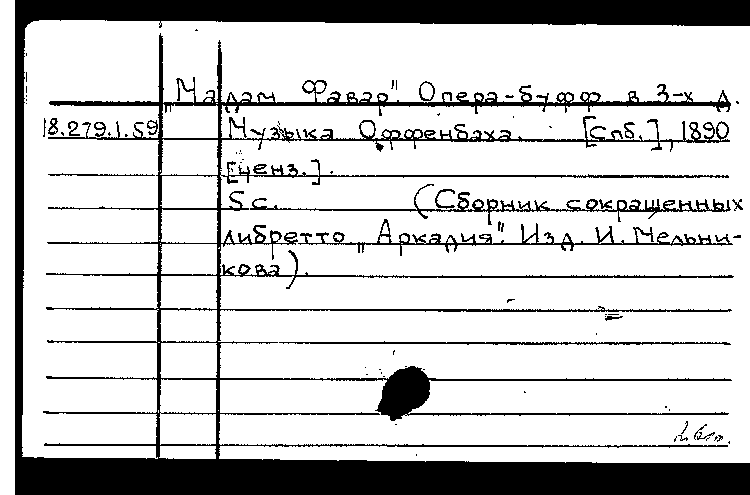 „Мадам Фавар". Опера-буфф в 3-х д.
18.279.1.59 Музыка Оффенбаха. [Спб.], 1890
[ценз.].
5 с. (Сборник сокращенных
либретто „Аркадия". Изд. И. Мельни-
кова).